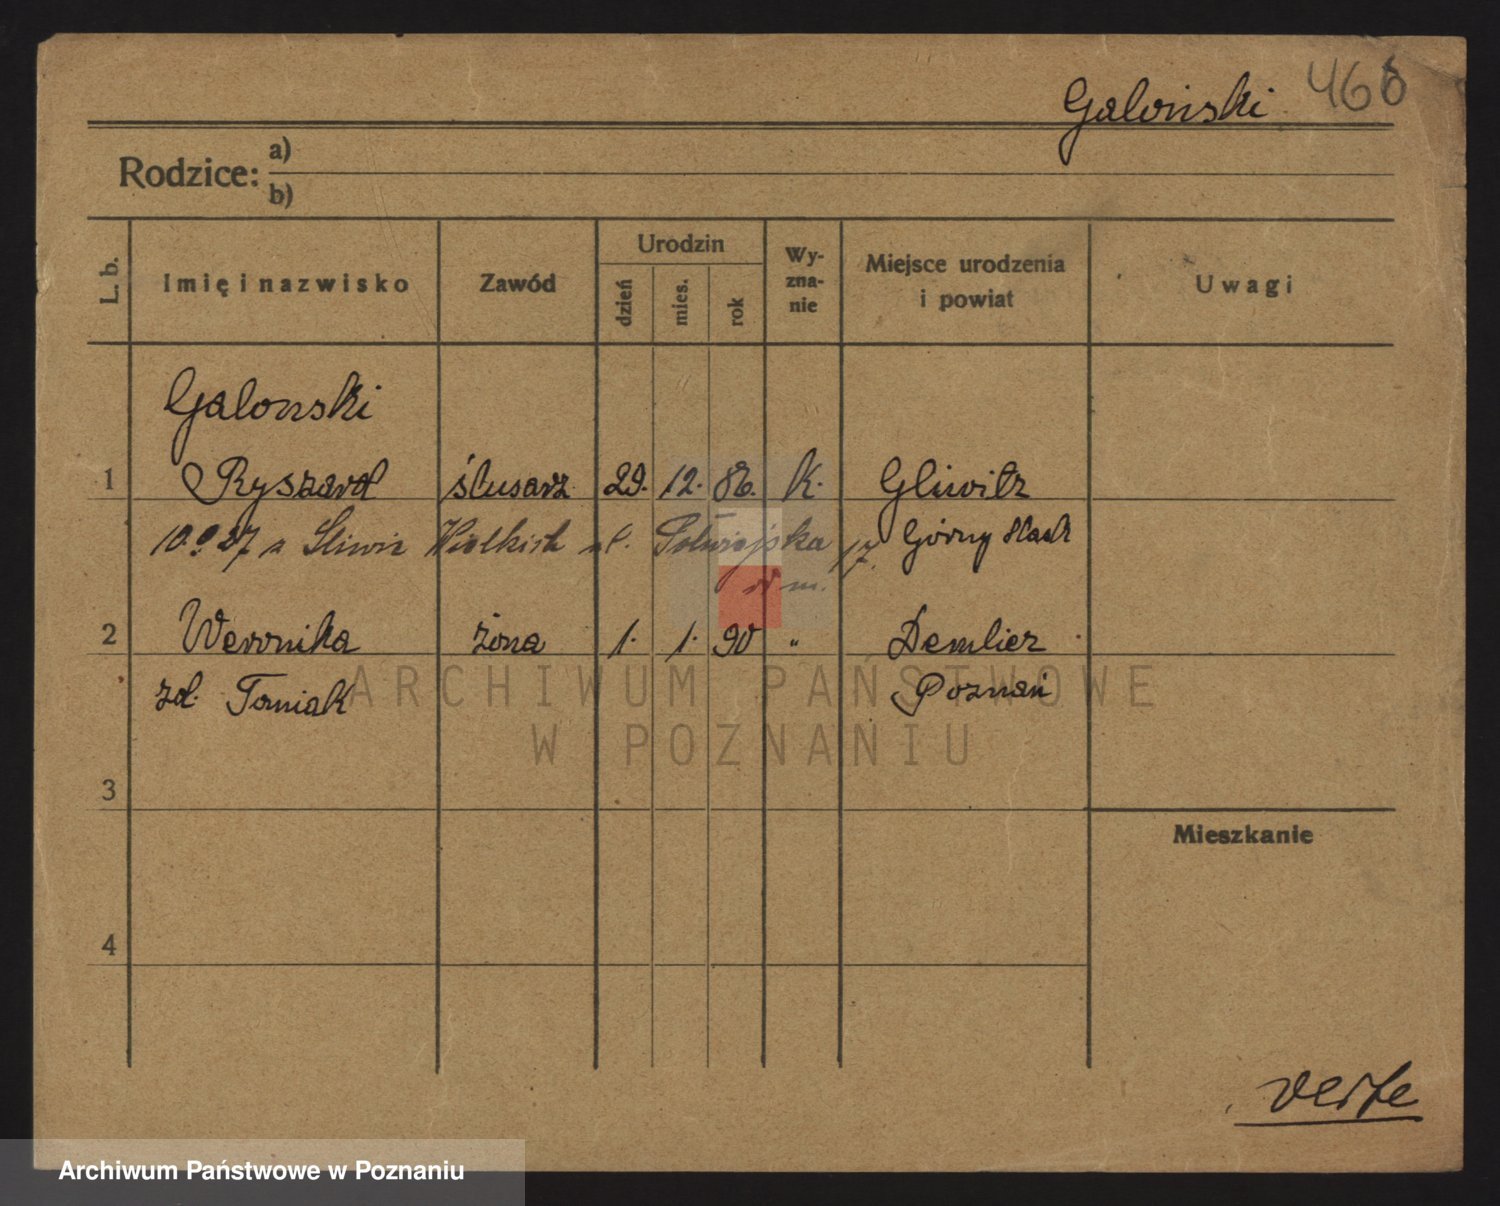 Galoński 468
Rodzice: a)
b)
L. b. Imię i nazwisko Zawód Urodzin dzień mies. rok Wy-zna-nie Miejsce urodzenia i powiat Uwagi
Galonski
1 Ryszard ślusarz 29. 12. 86. K. Gliwitz
10.9.27 z Śliwic Wielkich ul. 17. Górny Śląsk
w m.
2 Weronika żona 1. 1. 90 " Demlicz
zd. Tomiak Poznań
3
Mieszkanie
4
verte
ARCHIWUM PAŃSTWOWE
W POZNANIU
Archiwum Państwowe w Poznaniu